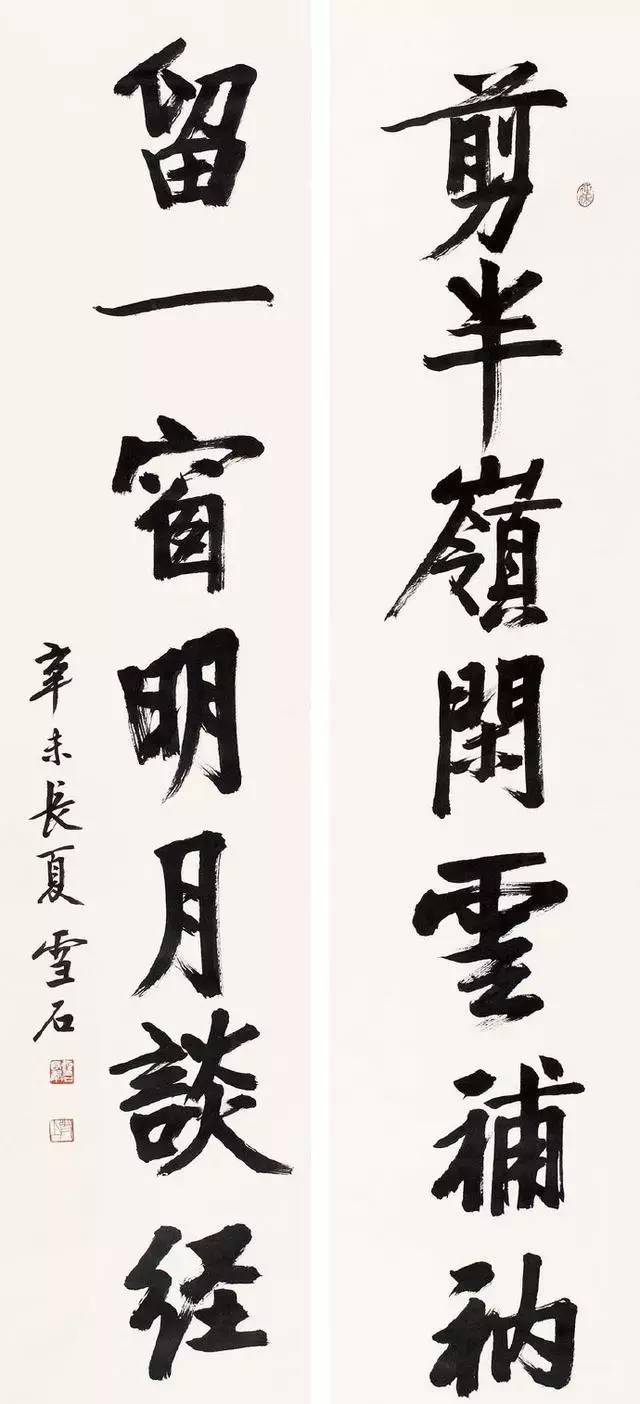 剪半嶺閑雲補衲
留一窗明月談经
辛未長夏 雪石